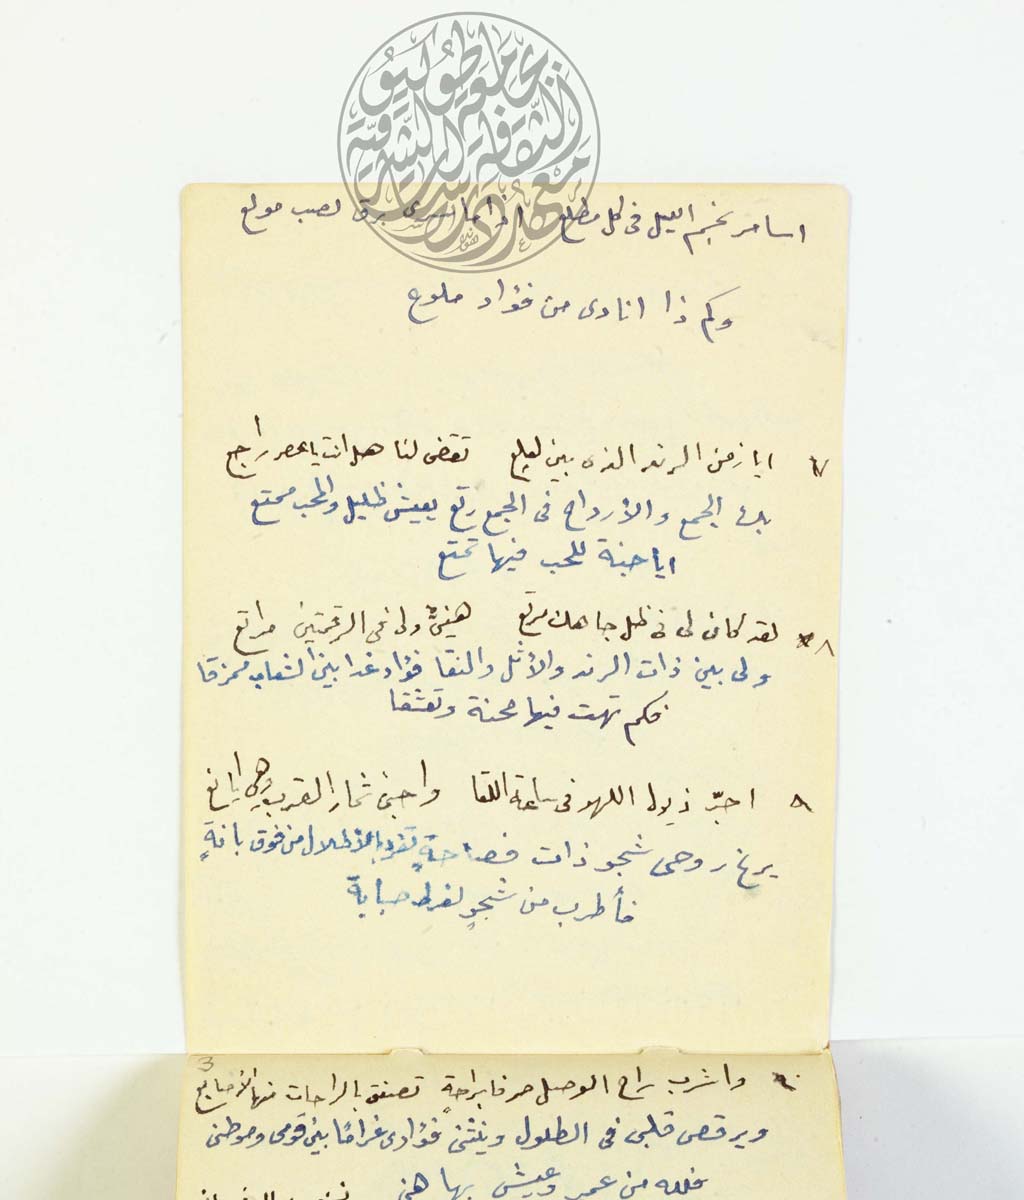 جامعة طوكيو
معهد الثقافة الشرقية
اسامر نجم الليل فى كل مطلع اذا ما سرى برق لصب مولع
وكم ذا انادى من فؤاد ملوع
٧ ايا زمن الرند الذى بين لعلع تقضى لنا هل انت يا عصر راجع
بك الجمع والأرواح فى الجمع رتع بعيش ظليل والمحب ممتع
ايا جنة للحب فيها تمتع
٨ لقد كان لى فى ظل جاهك مرتع هنيئٌ ولى فى الرقمتين مراتع
ولى بين ذات الرند والأثل والنقا فؤاد غدا بين الشعاب ممزقا
فكم تهت فيها محنة وتعشقا
اجرّ ذيول اللهو فى ساعة اللقا واجنى ثمار القرب وهى ايانع
روحى شجو ذات بالأطلال من فوق بانةٍ
فأطرب من شجوٍ لفرط صبابة
3
واشرب راح الوصل صرفا براحةٍ تصفق بالراحات منها الأصابع
ويرقص قلبى فى الطلول وينثنى فؤادى غرامًا بين قومى وموطنى
فلله من عمر وعيش بها هنى